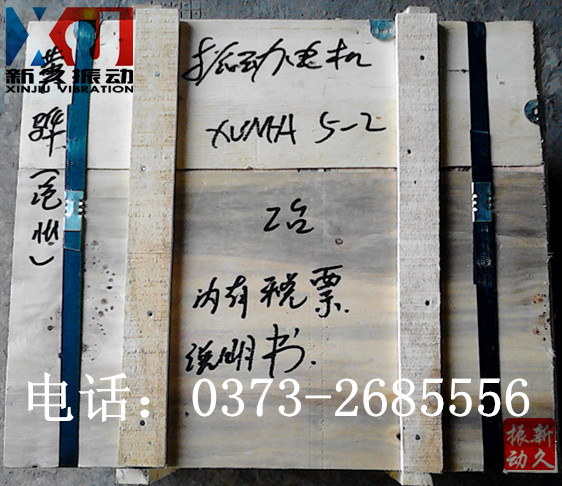 新久振动
XINJIU VIBRATION
振动电机
XUMA 5-2
2台
内有税票
说明书.
电话：0373-2685556
新久
振动